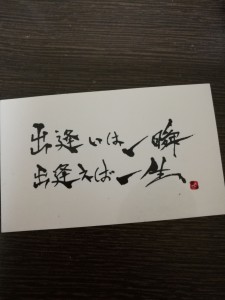 出逢いは、一瞬
出逢えば、一生